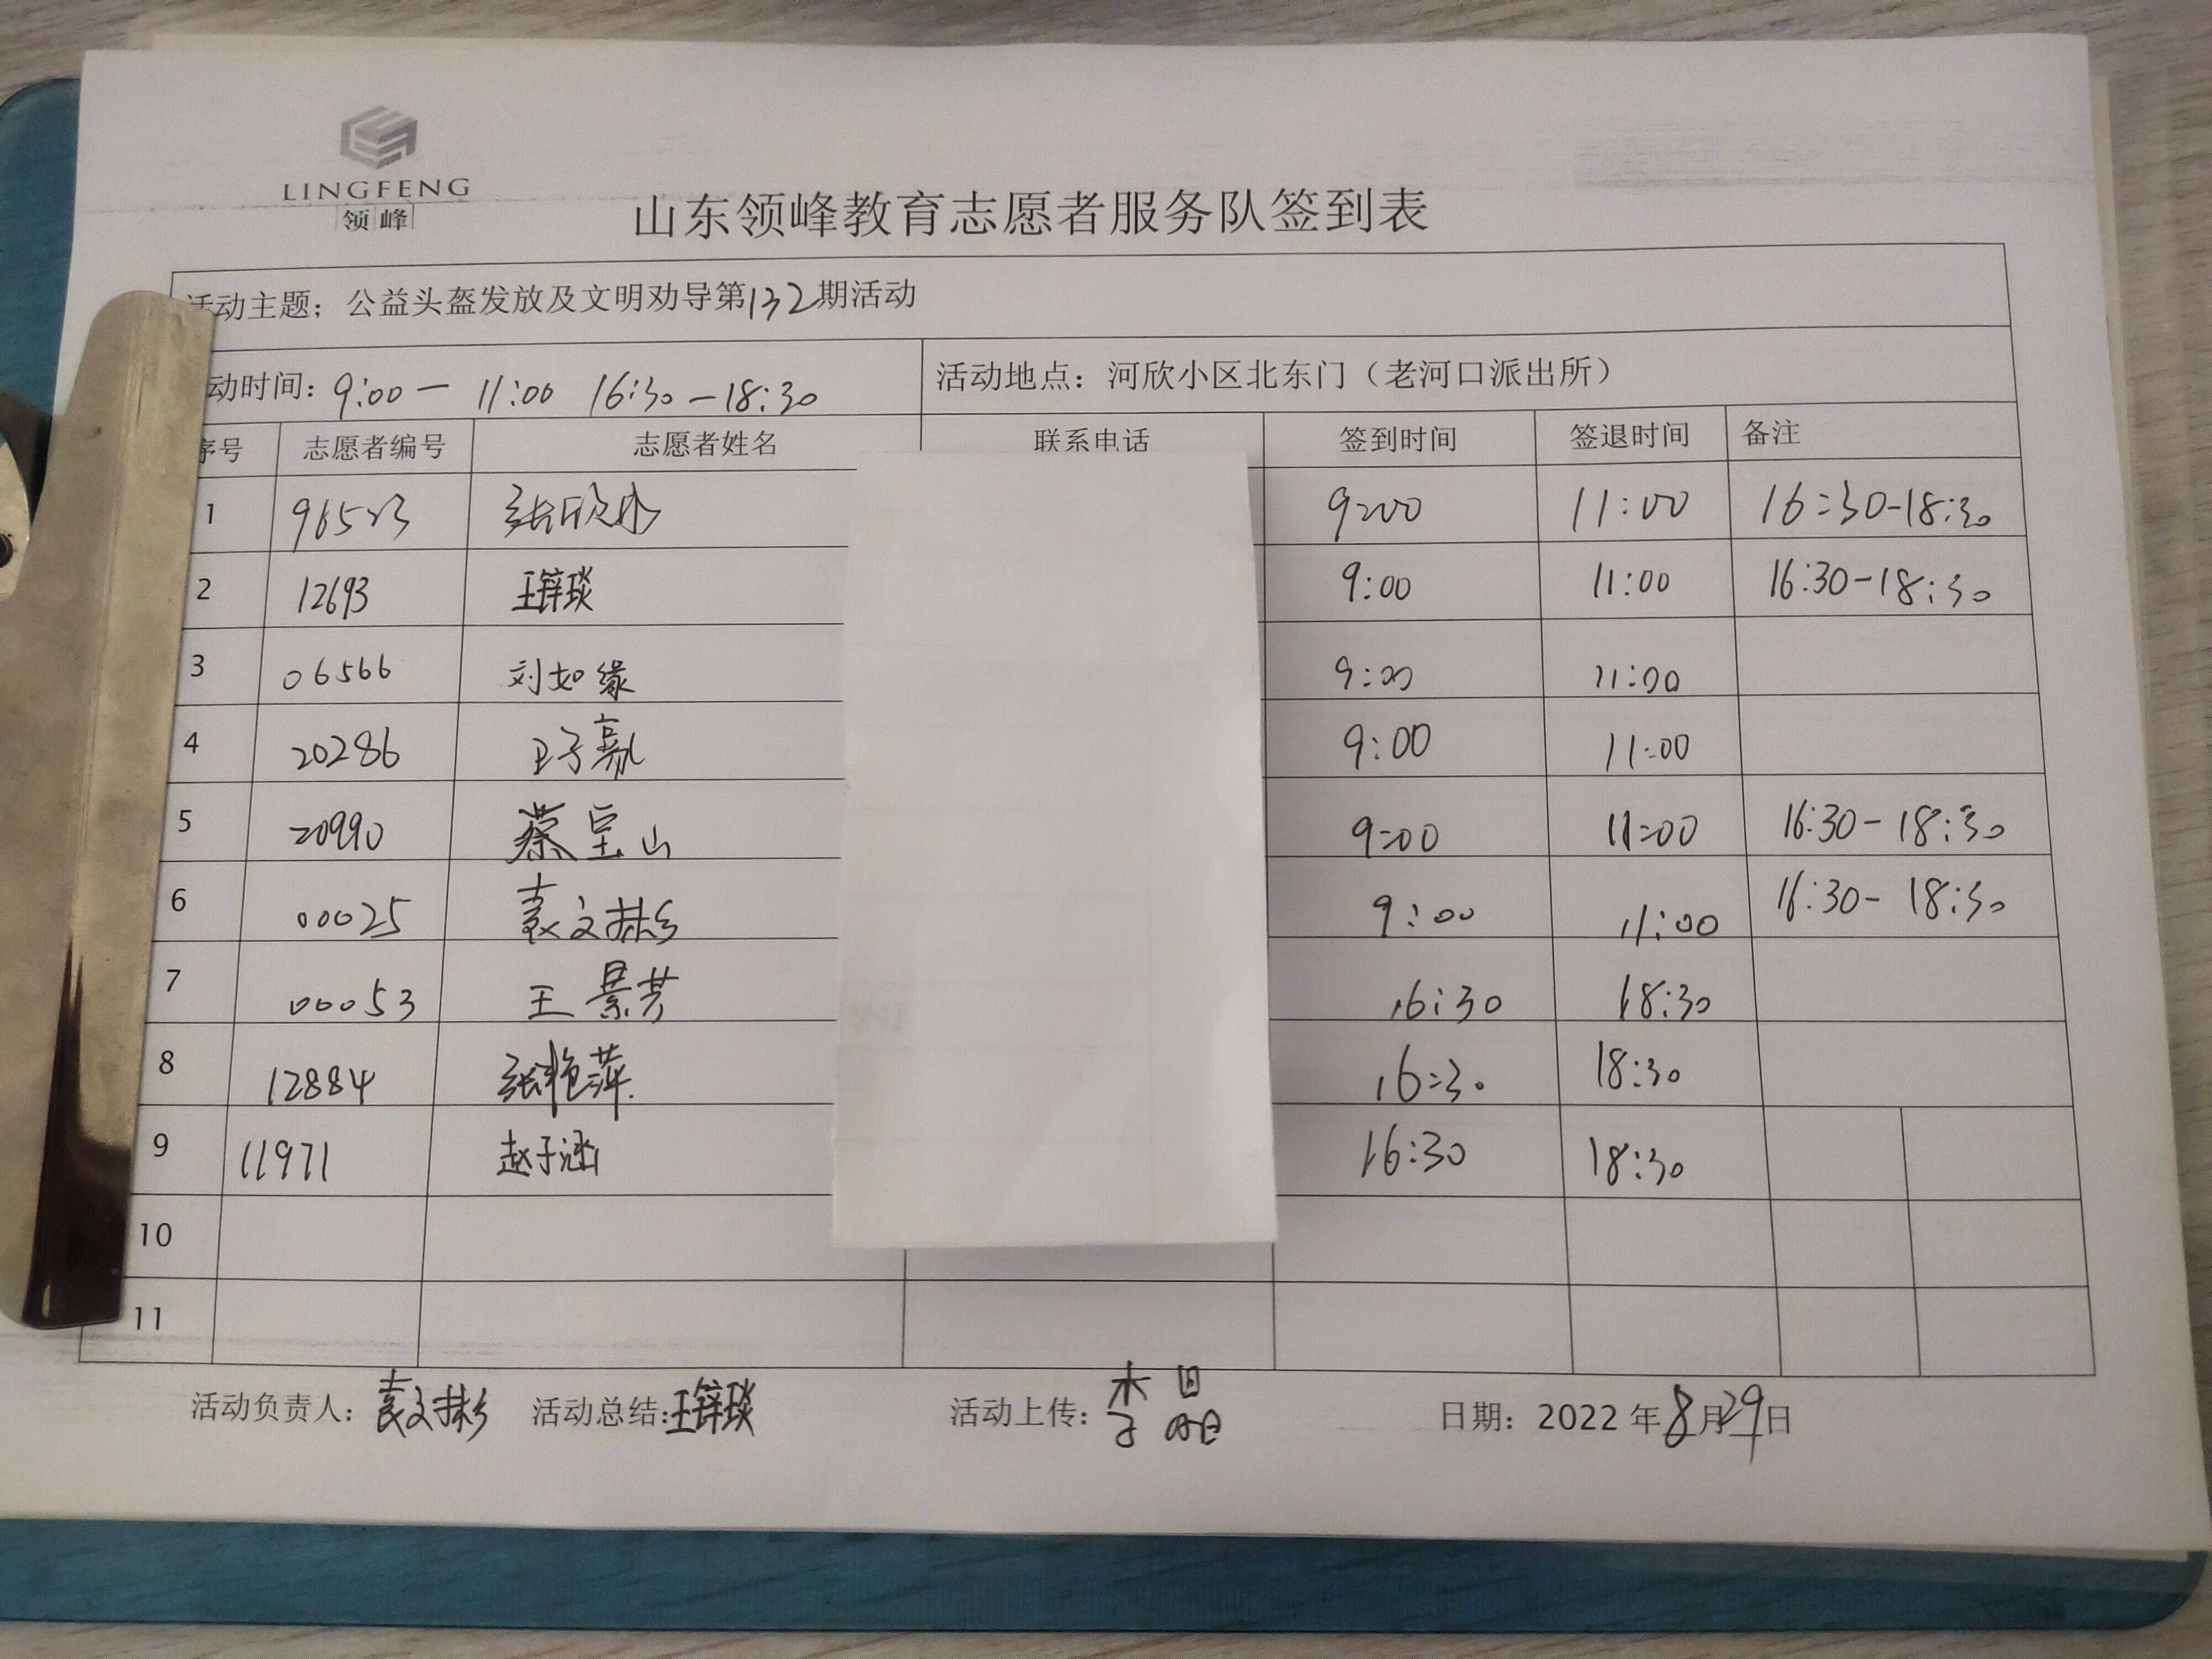 LINGFENG
领峰
山东领峰教育志愿者服务队签到表
活动主题；公益头盔发放及文明劝导第132期活动
动时间：9:00一 11:00 16:30-18:30 活动地点：河欣小区北东门（老河口派出所）
序号 志愿者编号 志愿者姓名 联系电话 签到时间 签退时间 备注
1 96523 张欣 9:00 11:00 16:30-18:30
2 12693 王锌琰 9:00 11:00 16:30-18:30
3 06566 刘如缘 9:00 11:00
4 20286 子 9:00 11:00
5 20990 蔡宝山 9:00 11:00 16:30-18:30
6 00025 袁文彬 9:00 11:00 16:30-18:30
7 00053 王景芳 16:30 18:30
8 12884 张艳萍 16:30 18:30
9 11971 赵子涵 16:30 18:30
10
11
活动负责人：袁文彬 活动总结：王锌琰 活动上传：李晶 日期：2022年8月29日